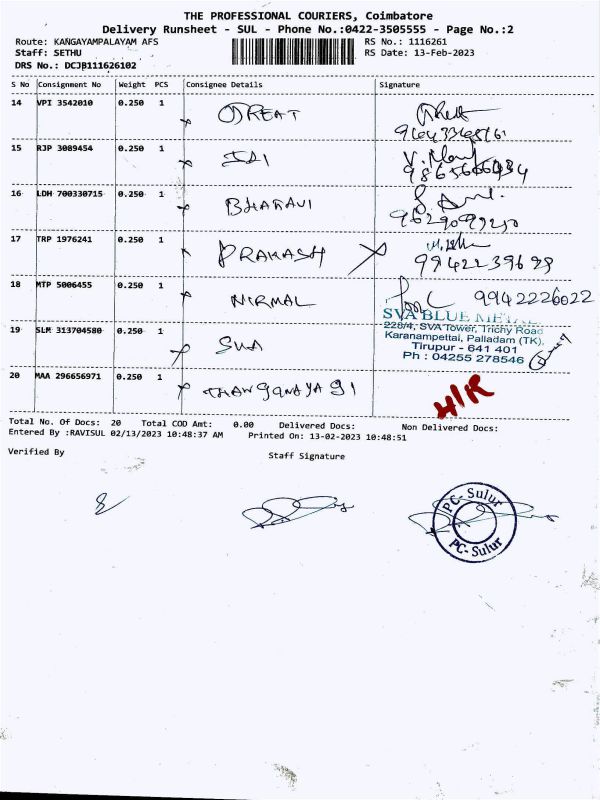 THE PROFESSIONAL COURIERS, Coimbatore
Delivery Runsheet - SUL - Phone No.:0422-3505555 - Page No.:2
Route: KANGAYAMPALAYAM AFS RS No.: 1116261
Staff: SETHU RS Date: 13-Feb-2023
DRS No.: DCJB111626102
S No Consignment No Weight PCS Consignee Details Signature
14 VPI 3542010 0.250 1
15 RJP 3089454 0.250 1
16 LDH 700330715 0.250 1 BHARAVI
17 TRP 1976241 0.250 1 PRAKASH
18 MTP 5006455 0.250 1 NIRMAL 9942226022
SVA BLUE METAL
228/4, SVA Tower, Trichy Road
Karanampettai, Palladam (TK),
Tirupur - 641 401
Ph : 04255 278546
19 SLM 313704580 0.250 1 SVA
20 MAA 296656971 0.250 1
Total No. Of Docs: 20 Total COD Amt: 0.00 Delivered Docs: Non Delivered Docs:
Entered By :RAVISUL 02/13/2023 10:48:37 AM Printed On: 13-02-2023 10:48:51
Verified By Staff Signature
PC- Sulur
PC- Sulur